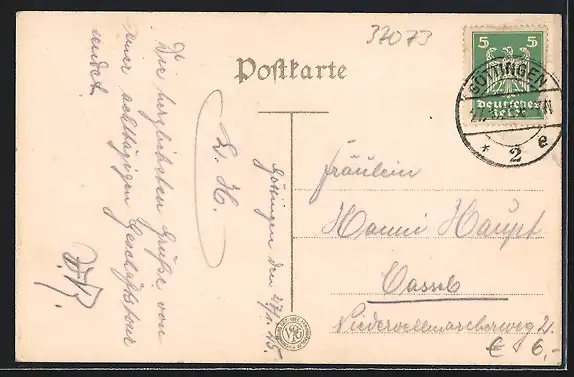 32073
Postkarte
5 5
GÖTTINGEN
Deutsches
Reich
* 2 e
Göttingen den
L. H.
Die herzlichsten Grüße von
einer achttägigen Geschäftstour
sendet
Fräulein
Hanni Haupt
Cassel
Niedervellmarcherweg 2.
€ 6,-